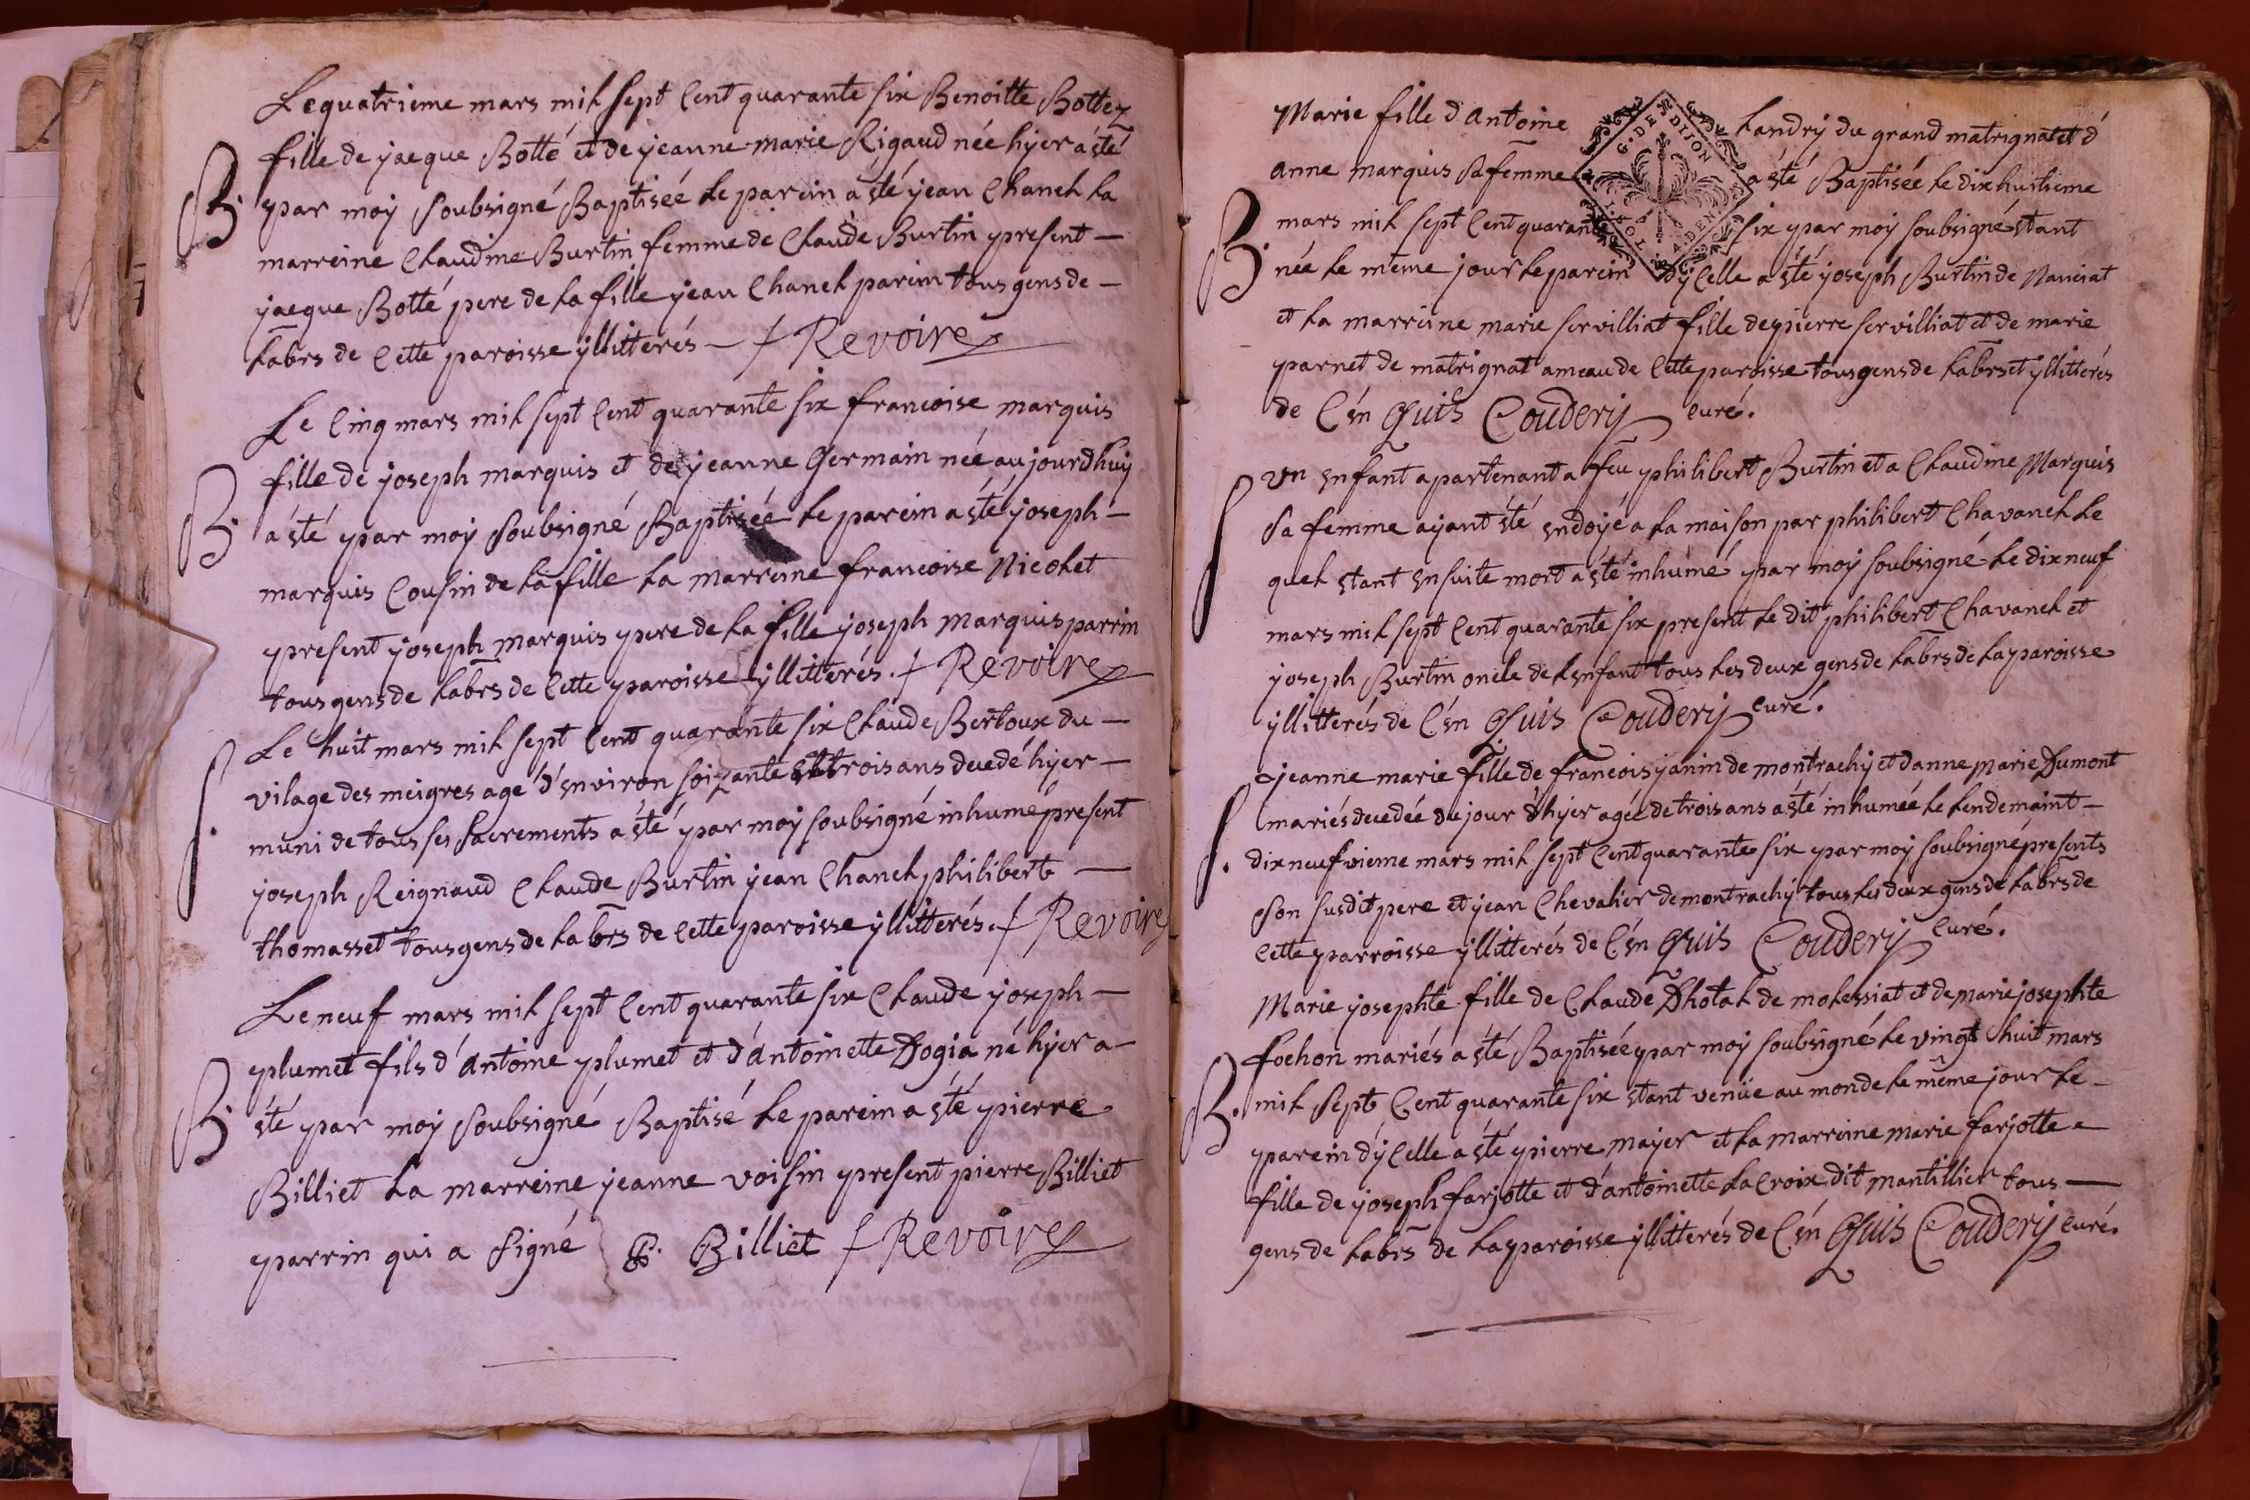 Le quatrieme mars mil sept Cent quarante six Benoitte Bottez
fille de jacque Botté et de jeanne marie Rigaud née hyer a été
B. par moy soubsigné Baptisée le parein a été jean Chanel La
marreine Claudine Burtin femme de Claude Burtin present —
jacque Botté pere de la fille jean Chanel parein tous gens de —
labrs de Cette paroisse yllitterés — / Revoire
Le Cinq mars mil sept Cent quarante six francoise marquis
fille de joseph marquis et de jeanne Germain née aujourdhuy
B. a été par moy soubsigné Baptisée le parein a été joseph —
marquis Cousin de la fille la marreine francoise Nicolet
present joseph marquis pere de la fille joseph marquis parrin
tous gens de labrs de Cette paroisse yllitterés. / Revoire
Le huit mars mil sept Cent quarante six Claude Bertoux du —
vilage des meigres agé d'environ soixante et trois ans decedé hyer —
S. muni de tous ses sacrements a été par moy soubsigné inhumé present
joseph Reignaud Claude Burtin jean Chanel philibert —
thomasset tous gens de labrs de Cette paroisse yllitterés. / Revoire
Le neuf mars mil sept Cent quarante six Claude joseph —
plumet fils d'Antoine plumet et d'Antoinette Dogia né hyer a —
B. été par moy soubsigné Baptisé le parein a été pierre
Billiet la marreine jeanne voisin present pierre Billiet
parrin qui a signé P. Billiet / Revoire
Marie fille d'Antoine Landry du grand matrignat et d'
G. DE DIJON
anne marquis sa femme a été Baptisée le dixhuitieme
mars mil sept Cent quarante six par moy soubsigné étant
B. née le même jour le parein d'yCelle a été joseph Burtin de Nanciat
et la marreine marie servilliat fille de pierre servilliat et de marie
parnet de matrignat ameau de Cette paroisse tous gens de labrs et yllitterés
de C'én Quis Couderij curé.
Un enfant apartenant a feu philibert Burtin et a Claudine Marquis
S sa femme ayant été endoyé a la maison par philibert Chavanel le
quel étant ensuite mort a été inhumé par moy soubsigné le dixneuf
mars mil sept Cent quarante six present le dit philibert Chavanel et
joseph Burtin oncle de l'enfant tous les deux gens de labrs de la paroisse
yllitterés de C'én Quis Couderij curé.
jeanne marie fille de francois janin de montrachy et d'anne Marie Dumont
mariés decedée du jour d'hyer agée de trois ans a été inhumée le lendemaint —
S. dixneufvieme mars mil sept Cent quarante six par moy soubsigné presents
son susdit pere et jean Chevalier de montrachy tous les deux gens de labrs de
cette parroisse yllitterés de C'én Quis Couderij Curé.
Marie josephte fille de Claude Dhotal de molessiat et de marie josephte
fochon mariés a été Baptisée par moy soubsigné le vingt huit mars
B. mil sept Cent quarante six étant venüe au monde le même jour le —
parein d'yCelle a été pierre mayer et la marreine marie farjotte
fille de joseph farjotte et d'antoinette la Croix dit mantillier tous —
gens de labrs de la paroisse yllitterés de C'én Quis Couderij Curé.